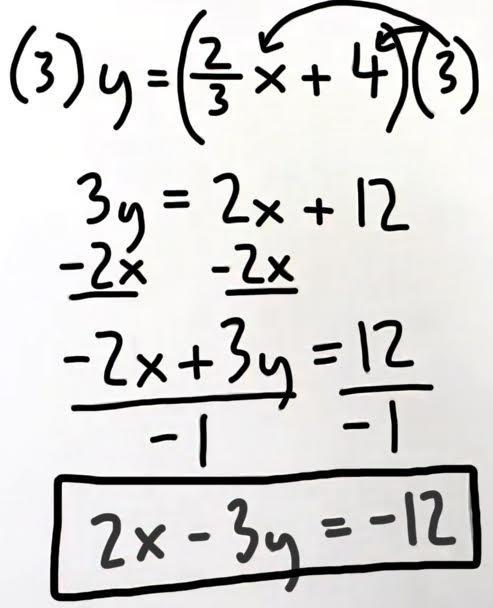 (3) y = (2/3 x + 4)(3)
3y = 2x + 12
-2x -2x
-2x + 3y = 12
-1 -1
2x - 3y = -12